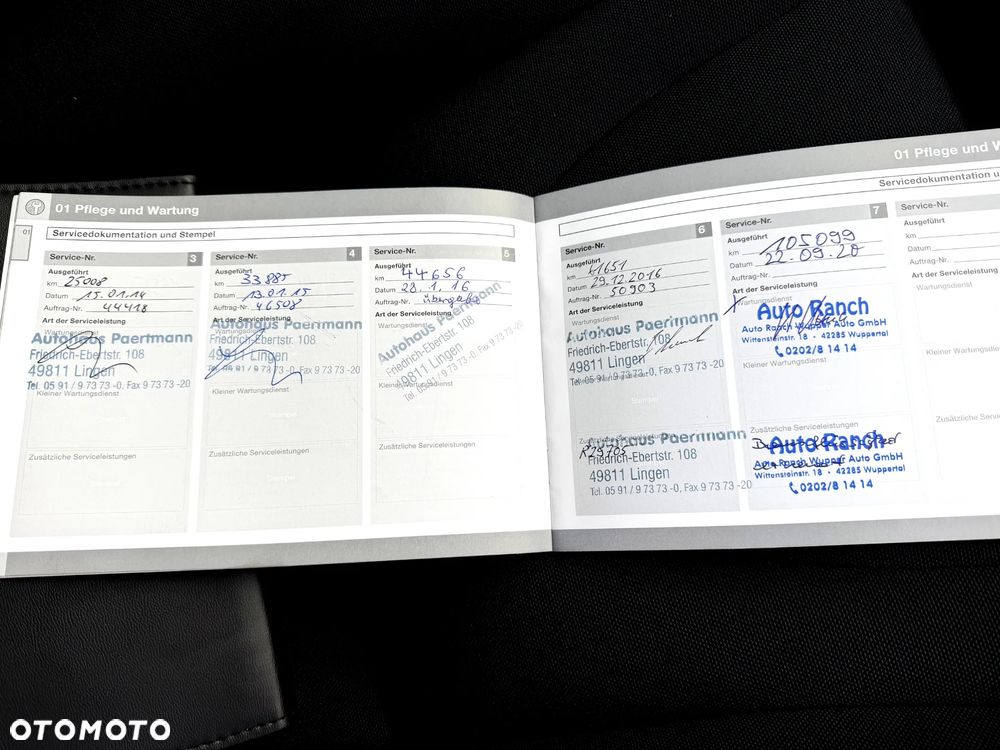 01 Pflege und Wartung
01
Servicedokumentation und Stempel
Service-Nr. 3
Ausgeführt
km 25008
Datum 15.01.14
Auftrag-Nr. 44418
Art der Serviceleistung
Wartungsdienst
Autohaus Paertmann
Friedrich-Ebertstr. 108
49811 Lingen
Tel. 05 91 / 9 73 73 -0, Fax 9 73 73 -20
Kleiner Wartungsdienst
Zusätzliche Serviceleistungen
Service-Nr. 4
Ausgeführt
km 33885
Datum 13.01.15
Auftrag-Nr. 46508
Art der Serviceleistung
Wartungsdienst
Autohaus Paertmann
Friedrich-Ebertstr. 108
49811 Lingen
Tel. 05 91 / 9 73 73 -0, Fax 9 73 73 -20
Kleiner Wartungsdienst
Zusätzliche Serviceleistungen
Service-Nr. 5
Ausgeführt
km 44656
Datum 28.1.16
Auftrag-Nr. Übergabe
Art der Serviceleistung
Wartungsdienst
Autohaus Paertmann
Friedrich-Ebertstr. 108
49811 Lingen
Tel. 05 91 / 9 73 73 -0, Fax 9 73 73 -20
Kleiner Wartungsdienst
Zusätzliche Serviceleistungen
01 Pflege und W
Servicedokumentation u
Service-Nr. 6
Ausgeführt
km 41651
Datum 29.12.2016
Auftrag-Nr. 50903
Art der Serviceleistung
Wartungsdienst
Autohaus Paertmann
Friedrich-Ebertstr. 108
49811 Lingen
Tel. 05 91 / 9 73 73 -0, Fax 9 73 73 -20
Kleiner Wartungsdienst
Stempel
Zusätzliche Serviceleistungen
Autohaus Paertmann
Friedrich-Ebertstr. 108
49811 Lingen
Tel. 05 91 / 9 73 73 -0, Fax 9 73 73 -20
Service-Nr. 7
Ausgeführt
km 105099
Datum 22.09.20
Auftrag-Nr.
Art der Serviceleistung
X
Wartungsdienst
Auto Ranch
Auto Ranch Wupper Auto GmbH
Wittensteinstr. 18 • 42285 Wuppertal
0202/8 14 14
Kleiner Wartungsdienst
Zusätzliche Serviceleistungen
Auto Ranch
Auto Ranch Wupper Auto GmbH
Wittensteinstr. 18 • 42285 Wuppertal
0202/8 14 14
Service-Nr.
Ausgeführt
km
Datum
Auftrag-Nr.
Art der Serviceleistung
Wartungsdienst
Kleiner Wartungsdienst
Zusätzliche Service
OTOMOTO